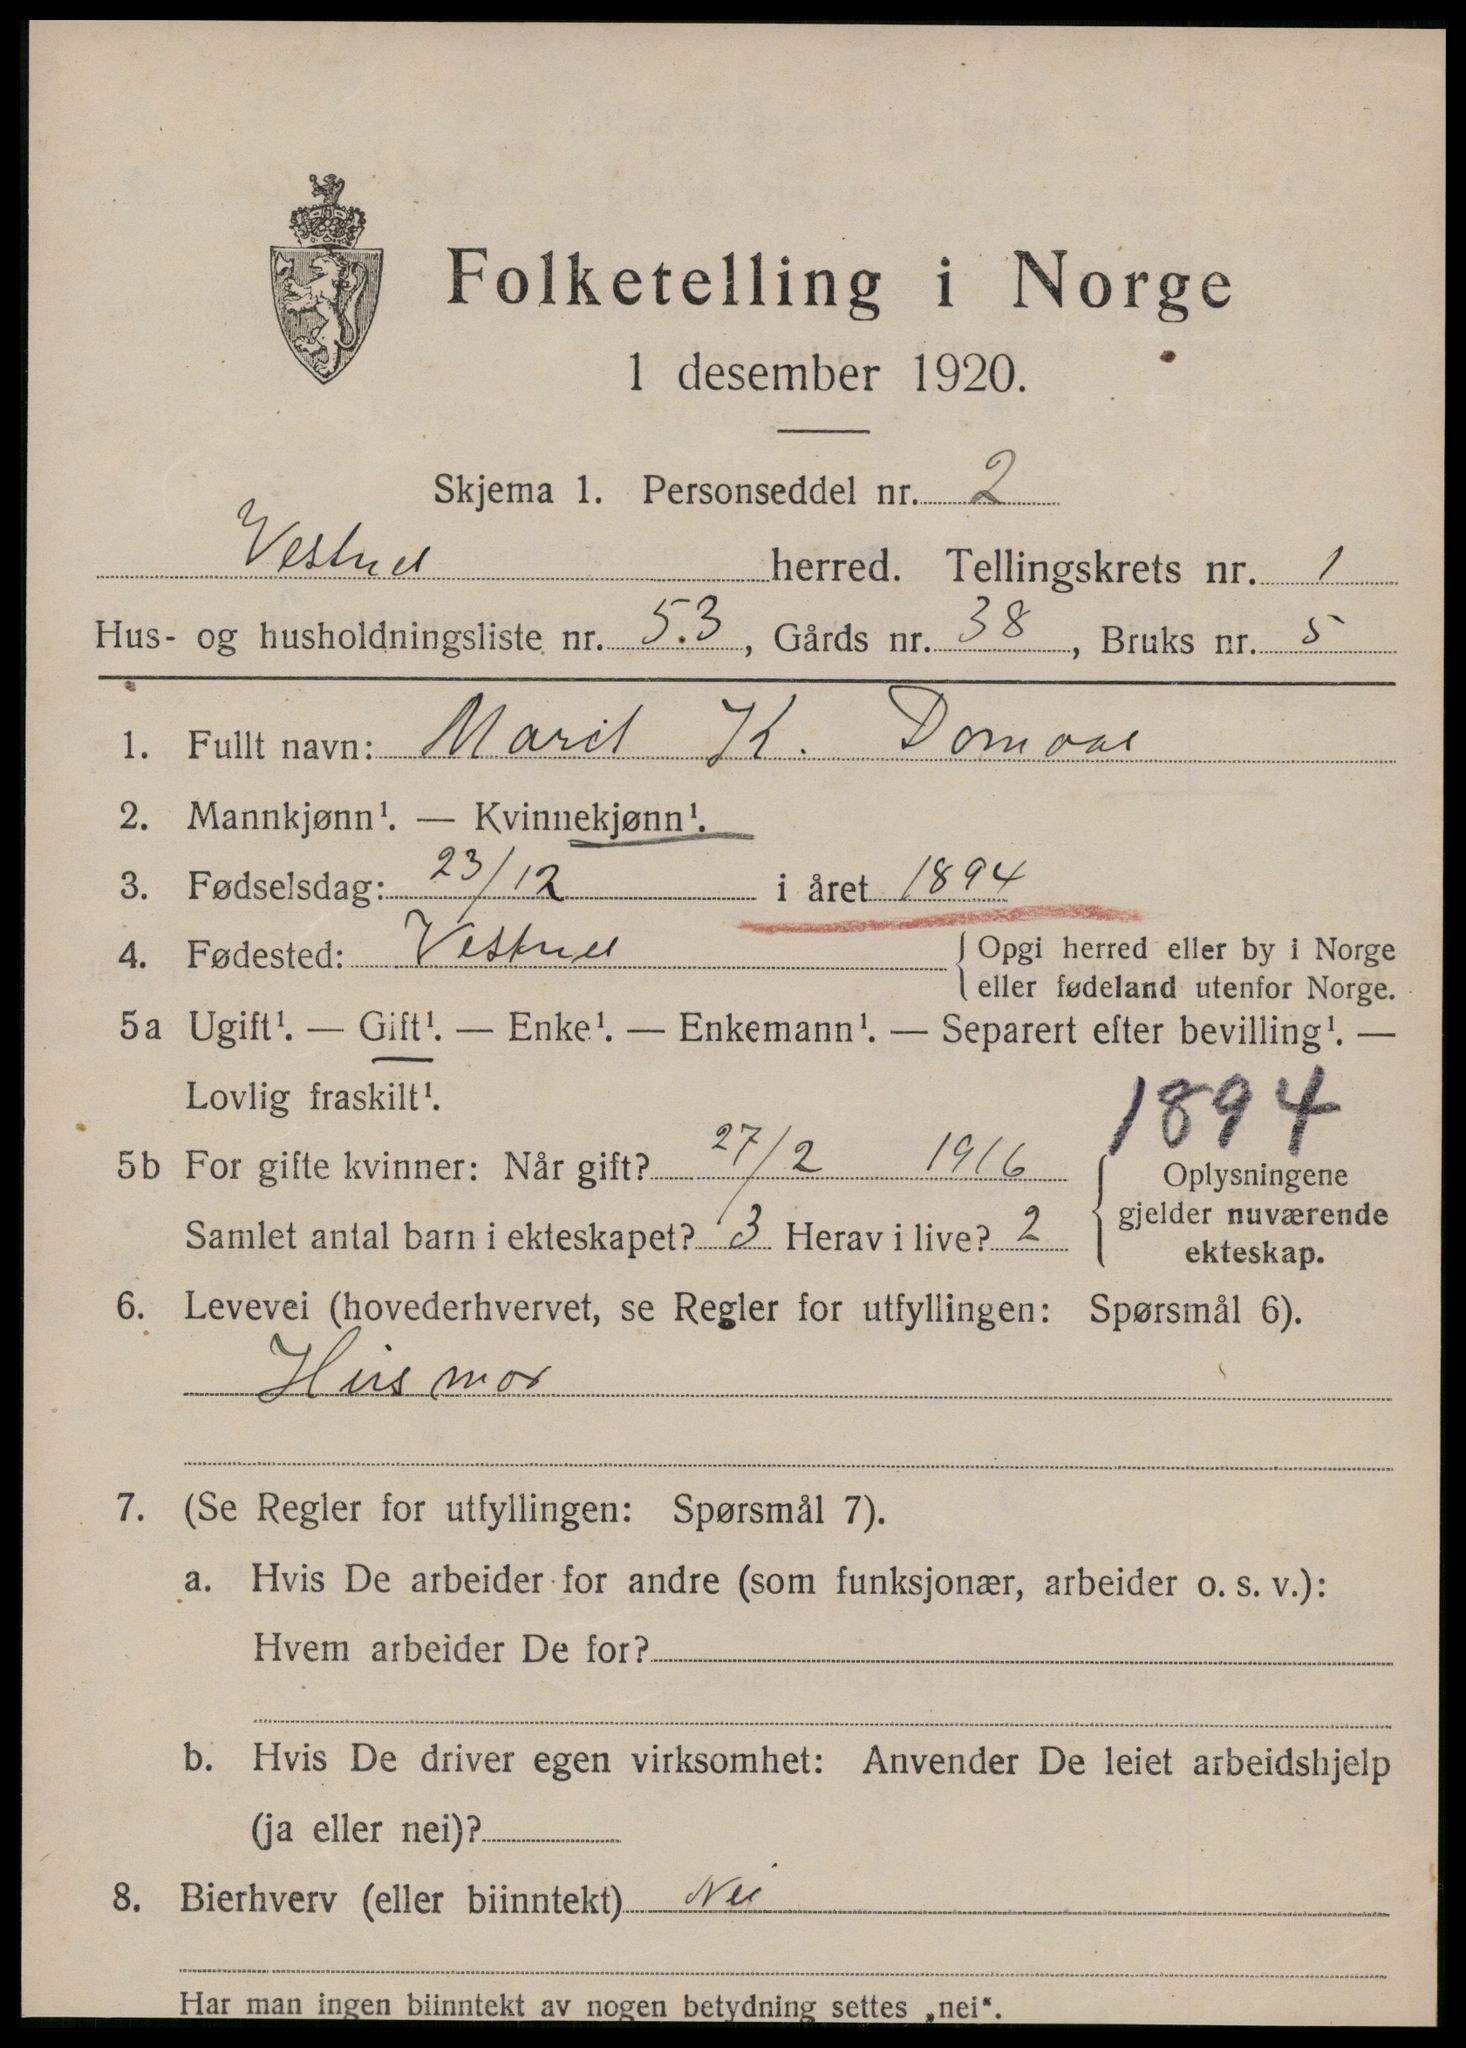 Folketelling i Norge
1 desember 1920.
Skjema 1. Personseddel nr. 2
Vestnes herred. Tellingskrets nr. 1
Hus- og husholdningsliste nr. 53, Gårds nr. 38, Bruks nr. 5
1. Fullt navn: Marit K.
2. Mannkjønn¹. — Kvinnekjønn¹.
3. Fødselsdag: 23/12 i året 1894
4. Fødested: Vestnes { Opgi herred eller by i Norge
eller fødeland utenfor Norge.
5a Ugift¹. — Gift¹. — Enke¹. — Enkemann¹. — Separert efter bevilling¹. —
Lovlig fraskilt¹.
1894
5b For gifte kvinner: Når gift? 27/2 1916
Samlet antal barn i ekteskapet? 3 Herav i live? 2
{ Oplysningene
gjelder nuværende
ekteskap.
6. Levevei (hovederhvervet, se Regler for utfyllingen: Spørsmål 6).
Husmor
7. (Se Regler for utfyllingen: Spørsmål 7).
a. Hvis De arbeider for andre (som funksjonær, arbeider o. s. v.):
Hvem arbeider De for?
b. Hvis De driver egen virksomhet: Anvender De leiet arbeidshjelp
(ja eller nei)?
8. Bierhverv (eller biinntekt) Nei
Har man ingen biinntekt av nogen betydning settes „nei“.